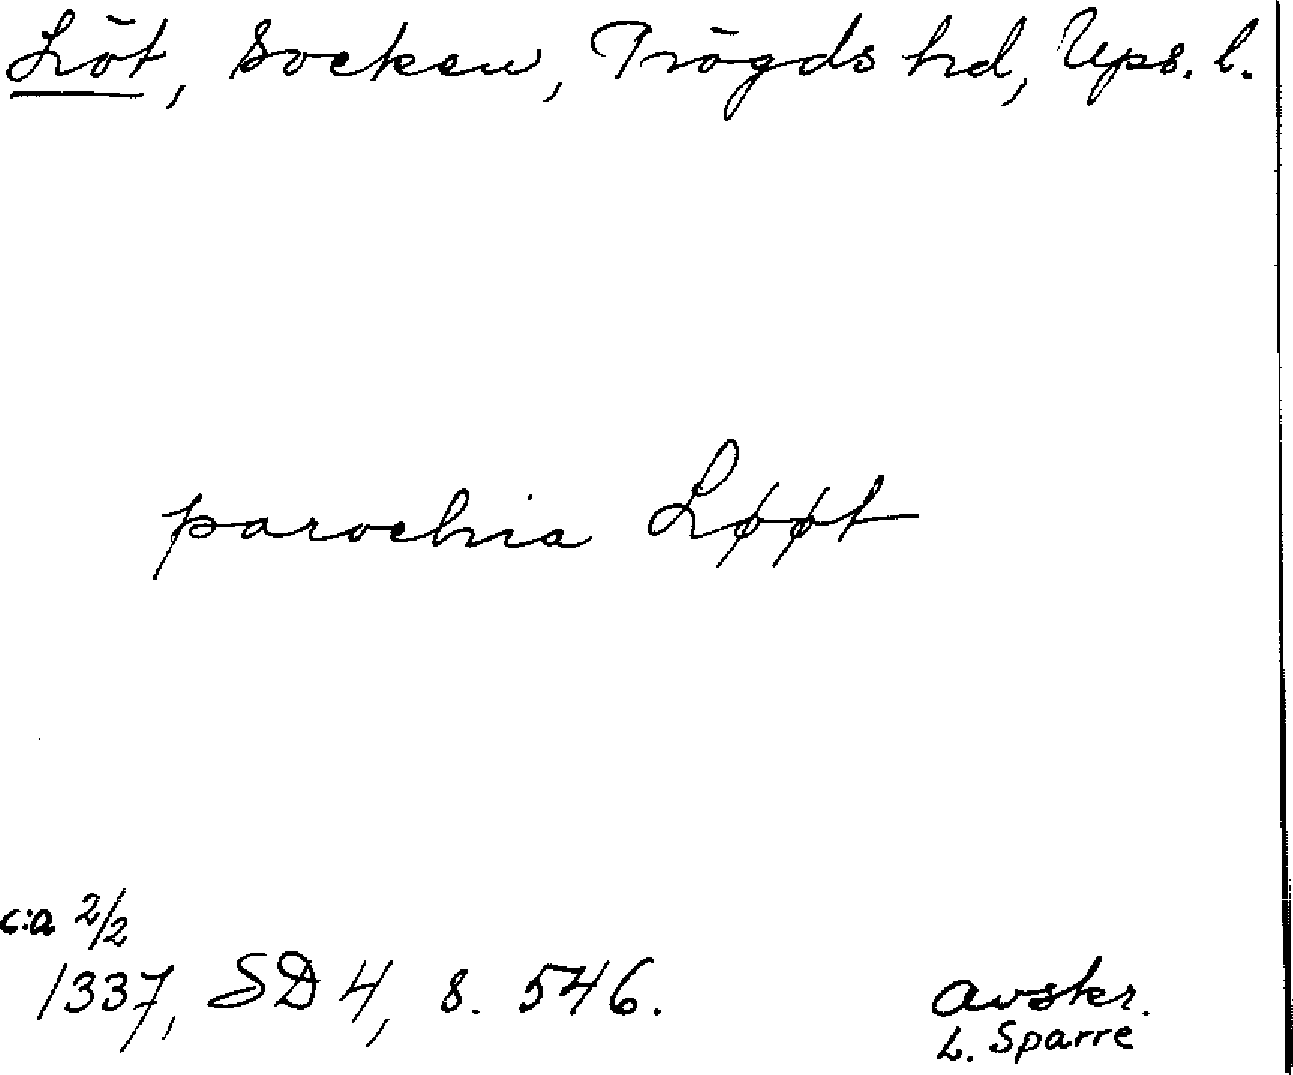 Löt, Socken, Trögds hd, Ups. l.
parochia Løøt
c:a 2/2
1337, SD 4, s. 546.
avskr.
L. Sparre